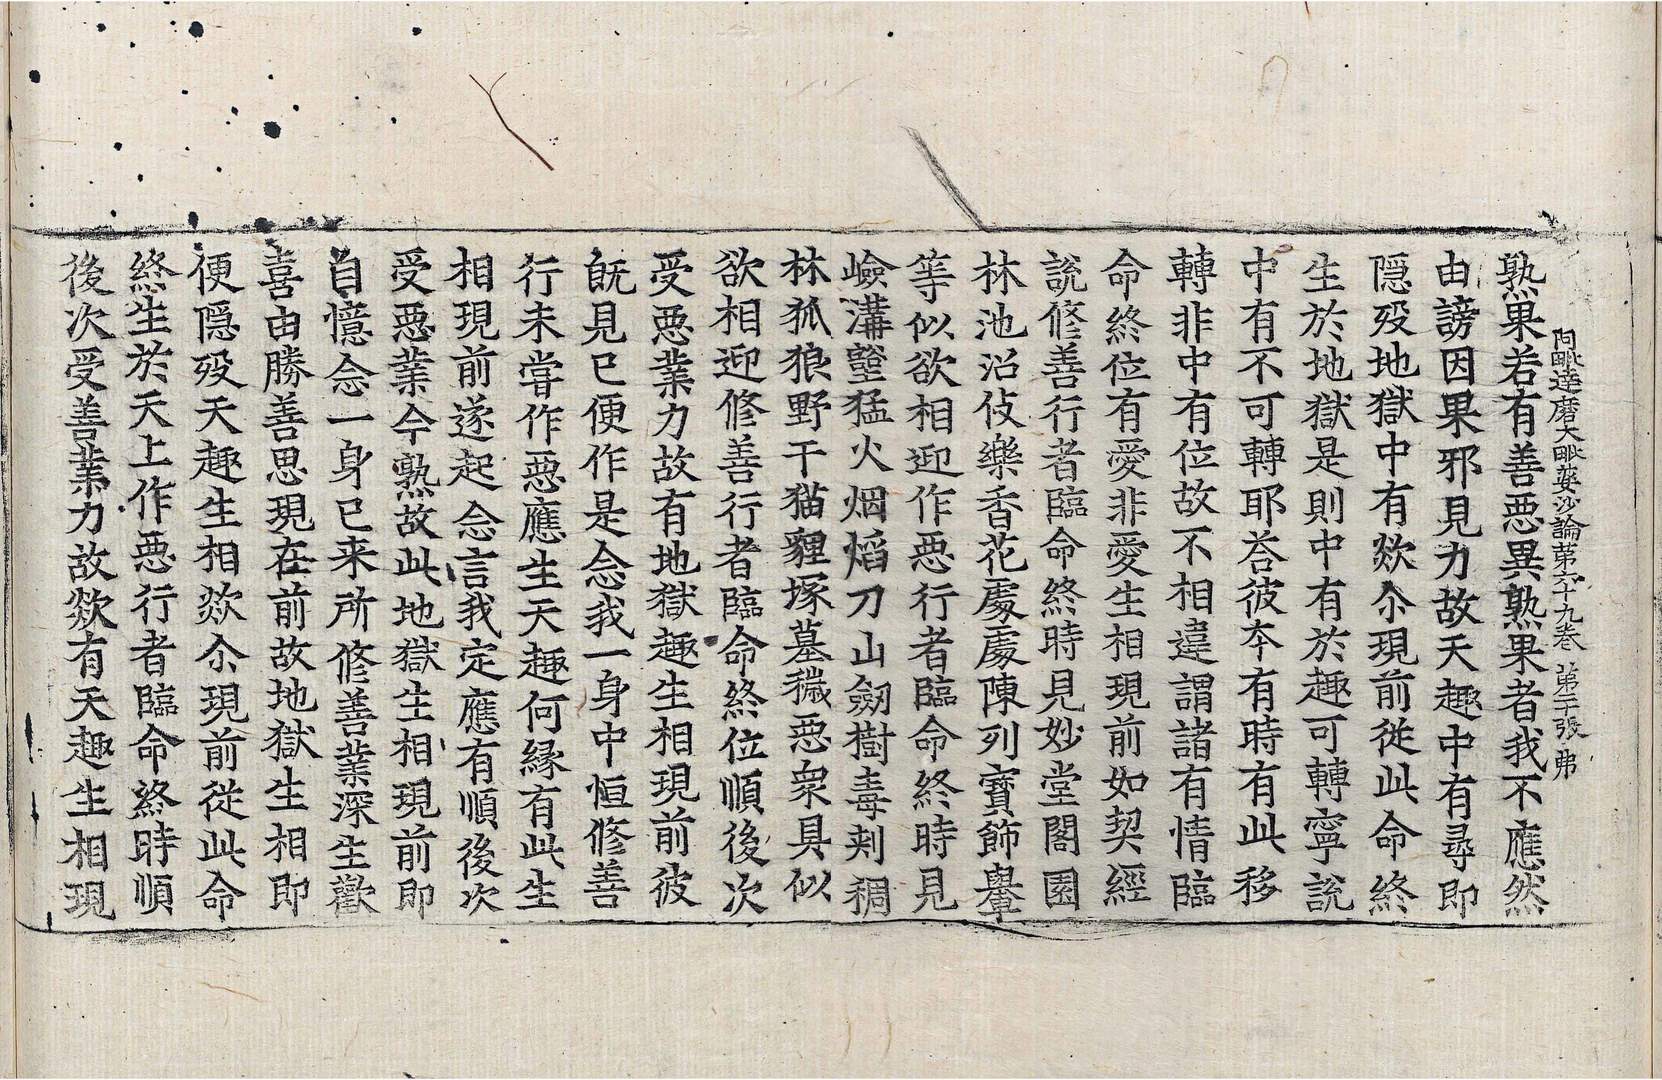 阿毗達磨大毗婆沙論第六十九卷 第二十張 弗
熟果若有善惡異熟果者我不應然
由謗因果邪見力故天趣中有尋即
隱歿地獄中有欻尒現前從此命終
生於地獄是則中有於趣可轉寧說
中有不可轉耶荅彼本有時有此移
轉非中有位故不相違謂諸有情臨
命終位有愛非愛生相現前如契經
說修善行者臨命終時見妙堂閣園
林池沼伎樂香花處處陳列寶飾轝
等似欲相迎作惡行者臨命終時見
嶮溝壑猛火烟焰刀山劒樹毒刺稠
林狐狼野干猫貍塚墓穢惡衆具似
欲相迎修善行者臨命終位順後次
受惡業力故有地獄趣生相現前彼
旣見已便作是念我一身中恒修善
行未嘗作惡應生天趣何緣有此生
相現前遂起念言我定應有順後次
受惡業今熟故此地獄生相現前即
自憶念一身已来所修善業深生歡
喜由勝善思現在前故地獄生相即
便隱歿天趣生相欻尒現前從此命
終生於天上作惡行者臨命終時順
後次受善業力故欻有天趣生相現